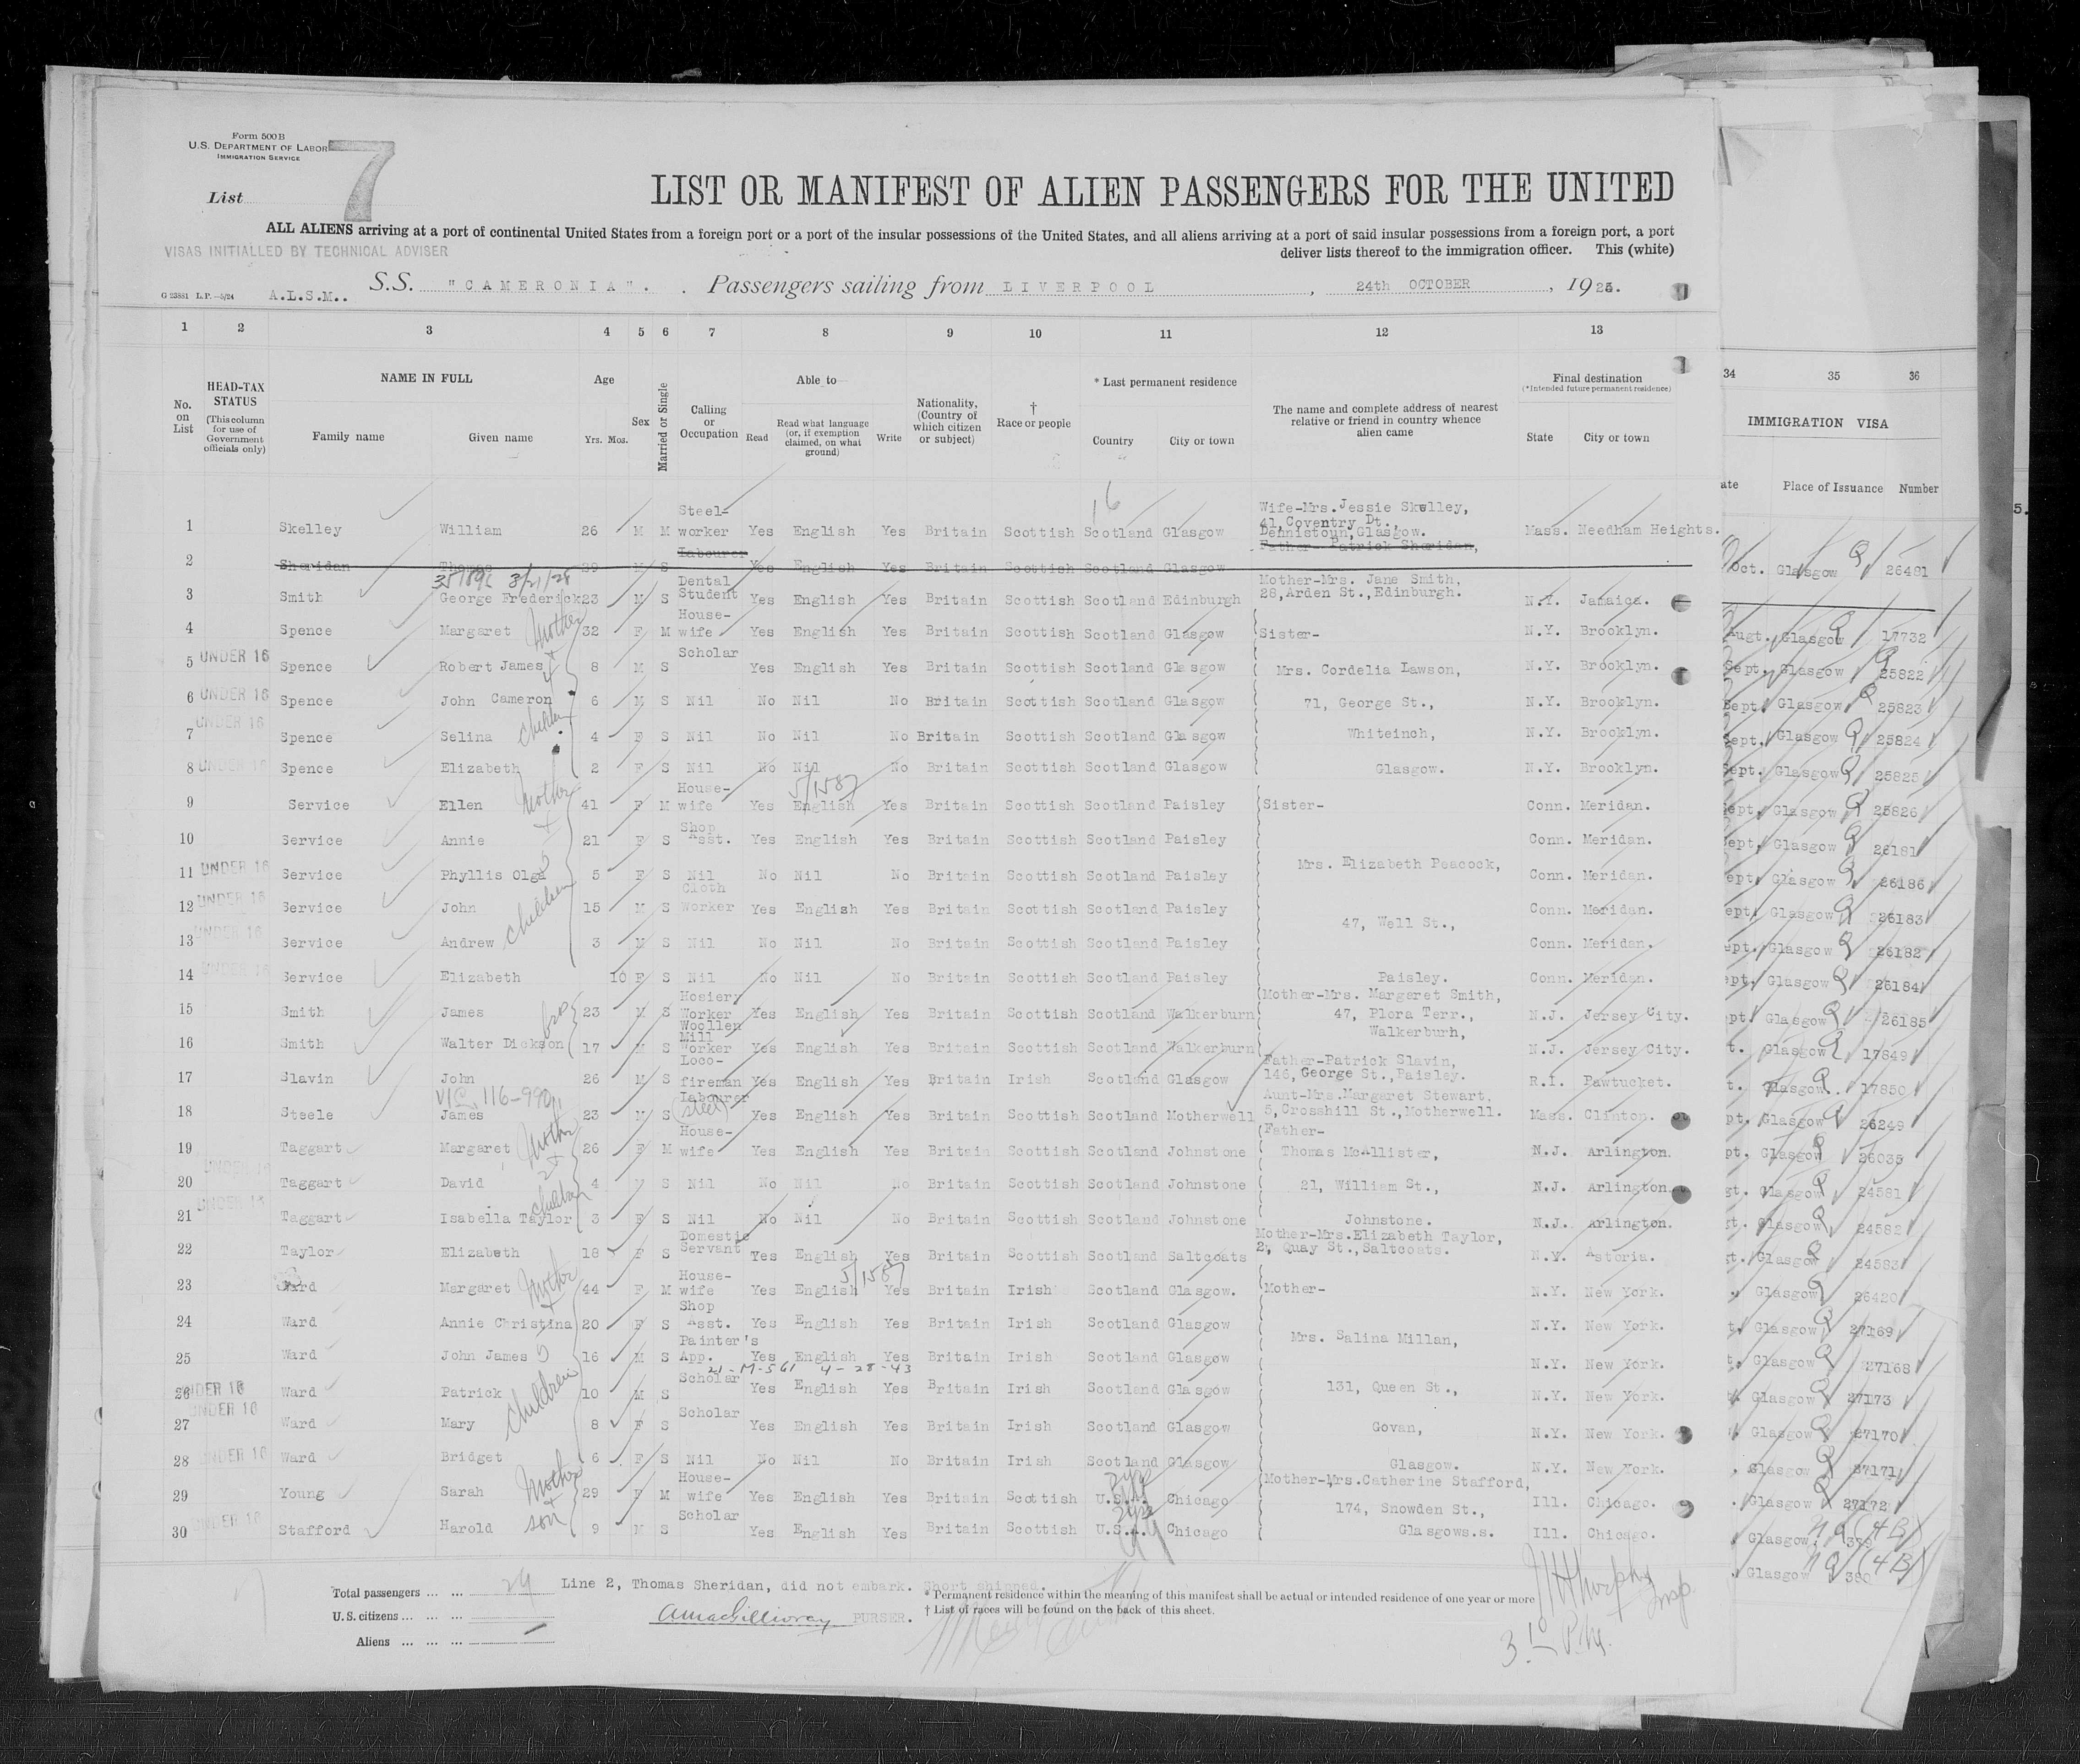 Form 500 B
U.S. DEPARTMENT OF LABOR
IMMIGRATION SERVICE
List 7
LIST OR MANIFEST OF ALIEN PASSENGERS FOR THE UNITED
ALL ALIENS arriving at a port of continental United States from a foreign port or a port of the insular possessions of the United States, and all aliens arriving at a port of said insular possessions from a foreign port, a port
VISAS INITIALLED BY TECHNICAL ADVISER
deliver lists thereof to the immigration officer. This (white)
G 23881 L.P.—5/24 A.L.S.M.. S.S. "CAMERONIA". Passengers sailing from LIVERPOOL, 24th OCTOBER, 1925.
1 2 3 4 5 6 7 8 9 10 11 12 13
34 35 36
No. on List
HEAD-TAX STATUS (This column for use of Government officials only)
NAME IN FULL
Family name Given name
Age
Yrs. Mos.
Sex
Married or Single
Calling or Occupation
Able to
Read
Read what language (or, if exemption claimed, on what ground)
Write
Nationality, (Country of which citizen or subject)
† Race or people
* Last permanent residence
Country City or town
The name and complete address of nearest relative or friend in country whence alien came
Final destination
(*Intended future permanent residence)
State City or town
IMMIGRATION VISA
Place of Issuance Number
16
1 Skelley William 26 M M Steel-worker Yes English Yes Britain Scottish Scotland Glasgow Wife-Mrs. Jessie Skelley, 41, Coventry Dt., Dennistoun, Glasgow. Mass. Needham Heights.
2 Sheridan Thomas 39 M S Labourer Yes English Yes Britain Scottish Scotland Glasgow Father- Patrick Sheridan,
3 Smith George Frederick 23 M S Dental Student Yes English Yes Britain Scottish Scotland Edinburgh Mother-Mrs. Jane Smith, 28, Arden St., Edinburgh. N.Y. Jamaica.
4 Spence Margaret Mother 32 F M House-wife Yes English Yes Britain Scottish Scotland Glasgow Sister- N.Y. Brooklyn.
5 UNDER 16 Spence Robert James 8 M S Scholar Yes English Yes Britain Scottish Scotland Glasgow Mrs. Cordelia Lawson, N.Y. Brooklyn.
6 UNDER 16 Spence John Cameron 6 M S Nil No Nil No Britain Scottish Scotland Glasgow 71, George St., N.Y. Brooklyn.
7 UNDER 16 Spence Selina 4 F S Nil No Nil No Britain Scottish Scotland Glasgow Whiteinch, N.Y. Brooklyn.
8 UNDER 16 Spence Elizabeth 2 F S Nil No Nil No Britain Scottish Scotland Glasgow Glasgow. N.Y. Brooklyn.
5/1587
9 Service Ellen Mother 41 F M House-wife Yes English Yes Britain Scottish Scotland Paisley Sister- Conn. Meridan.
10 Service Annie 21 F S Shop Asst. Yes English Yes Britain Scottish Scotland Paisley Conn. Meridan.
11 UNDER 16 Service Phyllis Olga 5 F S Nil No Nil No Britain Scottish Scotland Paisley Mrs. Elizabeth Peacock, Conn. Meridan.
12 UNDER 16 Service John children 15 M S Cloth Worker Yes English Yes Britain Scottish Scotland Paisley Conn. Meridan.
13 UNDER 16 Service Andrew 3 M S Nil No Nil No Britain Scottish Scotland Paisley 47, Well St., Conn. Meridan.
14 UNDER 16 Service Elizabeth 10 F S Nil No Nil No Britain Scottish Scotland Paisley Paisley. Conn. Meridan.
15 Smith James 23 M S Hosiery Worker Yes English Yes Britain Scottish Scotland Walkerburn Mother-Mrs. Margaret Smith, 47, Plora Terr., N.J. Jersey City.
16 Smith Walter Dickson bro 17 M S Woollen Mill Worker Yes English Yes Britain Scottish Scotland Walkerburn Walkerburh, N.J. Jersey City.
17 Slavin John 26 M S Loco-fireman Yes English Yes Britain Irish Scotland Glasgow Father-Patrick Slavin, 146, George St., Paisley. R.I. Pawtucket.
18 Steele James 23 M S Labourer (steel) Yes English Yes Britain Scottish Scotland Motherwell Aunt-Mrs. Margaret Stewart, 5, Crosshill St., Motherwell. Mass. Clinton.
19 Taggart Margaret Mother 26 F M House-wife Yes English Yes Britain Scottish Scotland Johnstone Father- Thomas McAllister, N.J. Arlington.
20 UNDER 16 Taggart David 4 M S Nil No Nil No Britain Scottish Scotland Johnstone 21, William St., N.J. Arlington.
21 UNDER 16 Taggart Isabella Taylor 3 F S Nil No Nil No Britain Scottish Scotland Johnstone Johnstone. N.J. Arlington.
22 Taylor Elizabeth 18 F S Domestic Servant Yes English Yes Britain Scottish Scotland Saltcoats Mother-Mrs. Elizabeth Taylor, 2, Quay St., Saltcoats. N.Y. Astoria.
5/1587
23 Ward Margaret Mother 44 F M House-wife Yes English Yes Britain Irish Scotland Glasgow. Mother- N.Y. New York.
24 Ward Annie Christina 20 F S Shop Asst. Yes English Yes Britain Irish Scotland Glasgow N.Y. New York.
25 Ward John James 5 16 M S Painter's App. Yes English Yes Britain Irish Scotland Glasgow Mrs. Salina Millan, N.Y. New York.
21-M-561 4-28-43
26 UNDER 16 Ward Patrick children 10 M S Scholar Yes English Yes Britain Irish Scotland Glasgow 131, Queen St., N.Y. New York.
27 UNDER 16 Ward Mary 8 F S Scholar Yes English Yes Britain Irish Scotland Glasgow Govan, N.Y. New York.
28 UNDER 16 Ward Bridget 6 F S Nil No Nil No Britain Irish Scotland Glasgow Glasgow. N.Y. New York.
29 Young Sarah Mother + son 29 F M House-wife Yes English Yes Britain Scottish U.S.A. Chicago Mother-Mrs. Catherine Stafford, 174, Snowden St., Ill. Chicago.
30 UNDER 16 Stafford Harold 9 M S Scholar Yes English Yes Britain Scottish U.S.A. Chicago Glasgows.s. Ill. Chicago.
Oct. Glasgow 26481
Augt. Glasgow 17732
Sept. Glasgow 25822
Sept. Glasgow 25823
Sept. Glasgow 25824
Sept. Glasgow 25825
Sept. Glasgow 25826
Sept. Glasgow 26181
Glasgow 26186
Glasgow 26183
Glasgow 26182
Glasgow 26184
Glasgow 26185
Glasgow 17849
Glasgow 17850
Glasgow 26249
Glasgow 26035
Glasgow 24581
Glasgow 24582
Glasgow 24583
Glasgow 26420
Glasgow 27169
Glasgow 27168
Glasgow 27173
Glasgow 27170
Glasgow 27171
Glasgow 27172
Glasgow (4B)
Glasgow (4B)
Total passengers 29 Line 2, Thomas Sheridan, did not embark. Short shipped.
U.S. citizens PURSER.
Aliens
* Permanent residence within the meaning of this manifest shall be actual or intended residence of one year or more
† List of races will be found on the back of this sheet.